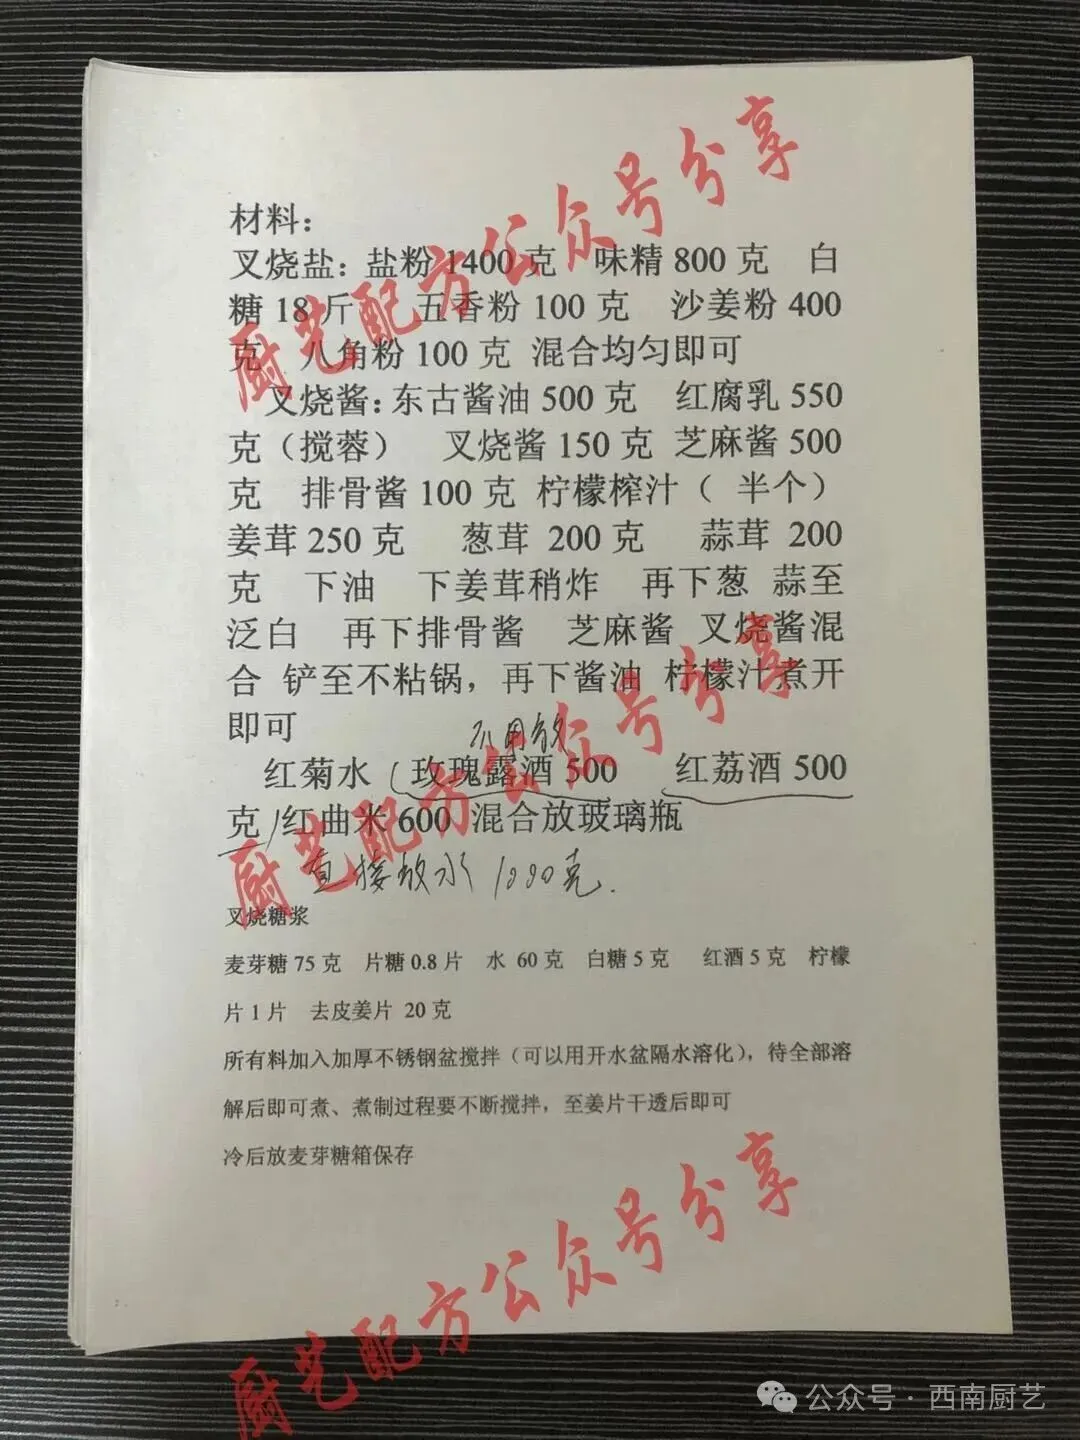 材料：
叉烧盐：盐粉 1400 克 味精 800 克 白
糖 18 斤 五香粉 100 克 沙姜粉 400
克 八角粉 100 克 混合均匀即可
叉烧酱：东古酱油 500 克 红腐乳 550
克（搅蓉） 叉烧酱 150 克 芝麻酱 500
克 排骨酱 100 克 柠檬榨汁（ 半个）
姜茸 250 克 葱茸 200 克 蒜茸 200
克 下油 下姜茸稍炸 再下葱 蒜至
泛白 再下排骨酱 芝麻酱 叉烧酱混
合 铲至不粘锅，再下酱油 柠檬汁煮开
即可
不用放
红菊水（玫瑰露酒 500 红荔酒 500
克）红曲米 600 混合放玻璃瓶
直接放水 1000克.
叉烧糖浆
麦芽糖 75 克 片糖 0.8 片 水 60 克 白糖 5 克 红酒 5 克 柠檬
片 1 片 去皮姜片 20 克
所有料加入加厚不锈钢盆搅拌（可以用开水盆隔水溶化），待全部溶
解后即可煮、煮制过程要不断搅拌，至姜片干透后即可
冷后放麦芽糖箱保存
厨艺配方公众号分享
厨艺配方公众号分享
厨艺配方公众号分享
公众号·西南厨艺